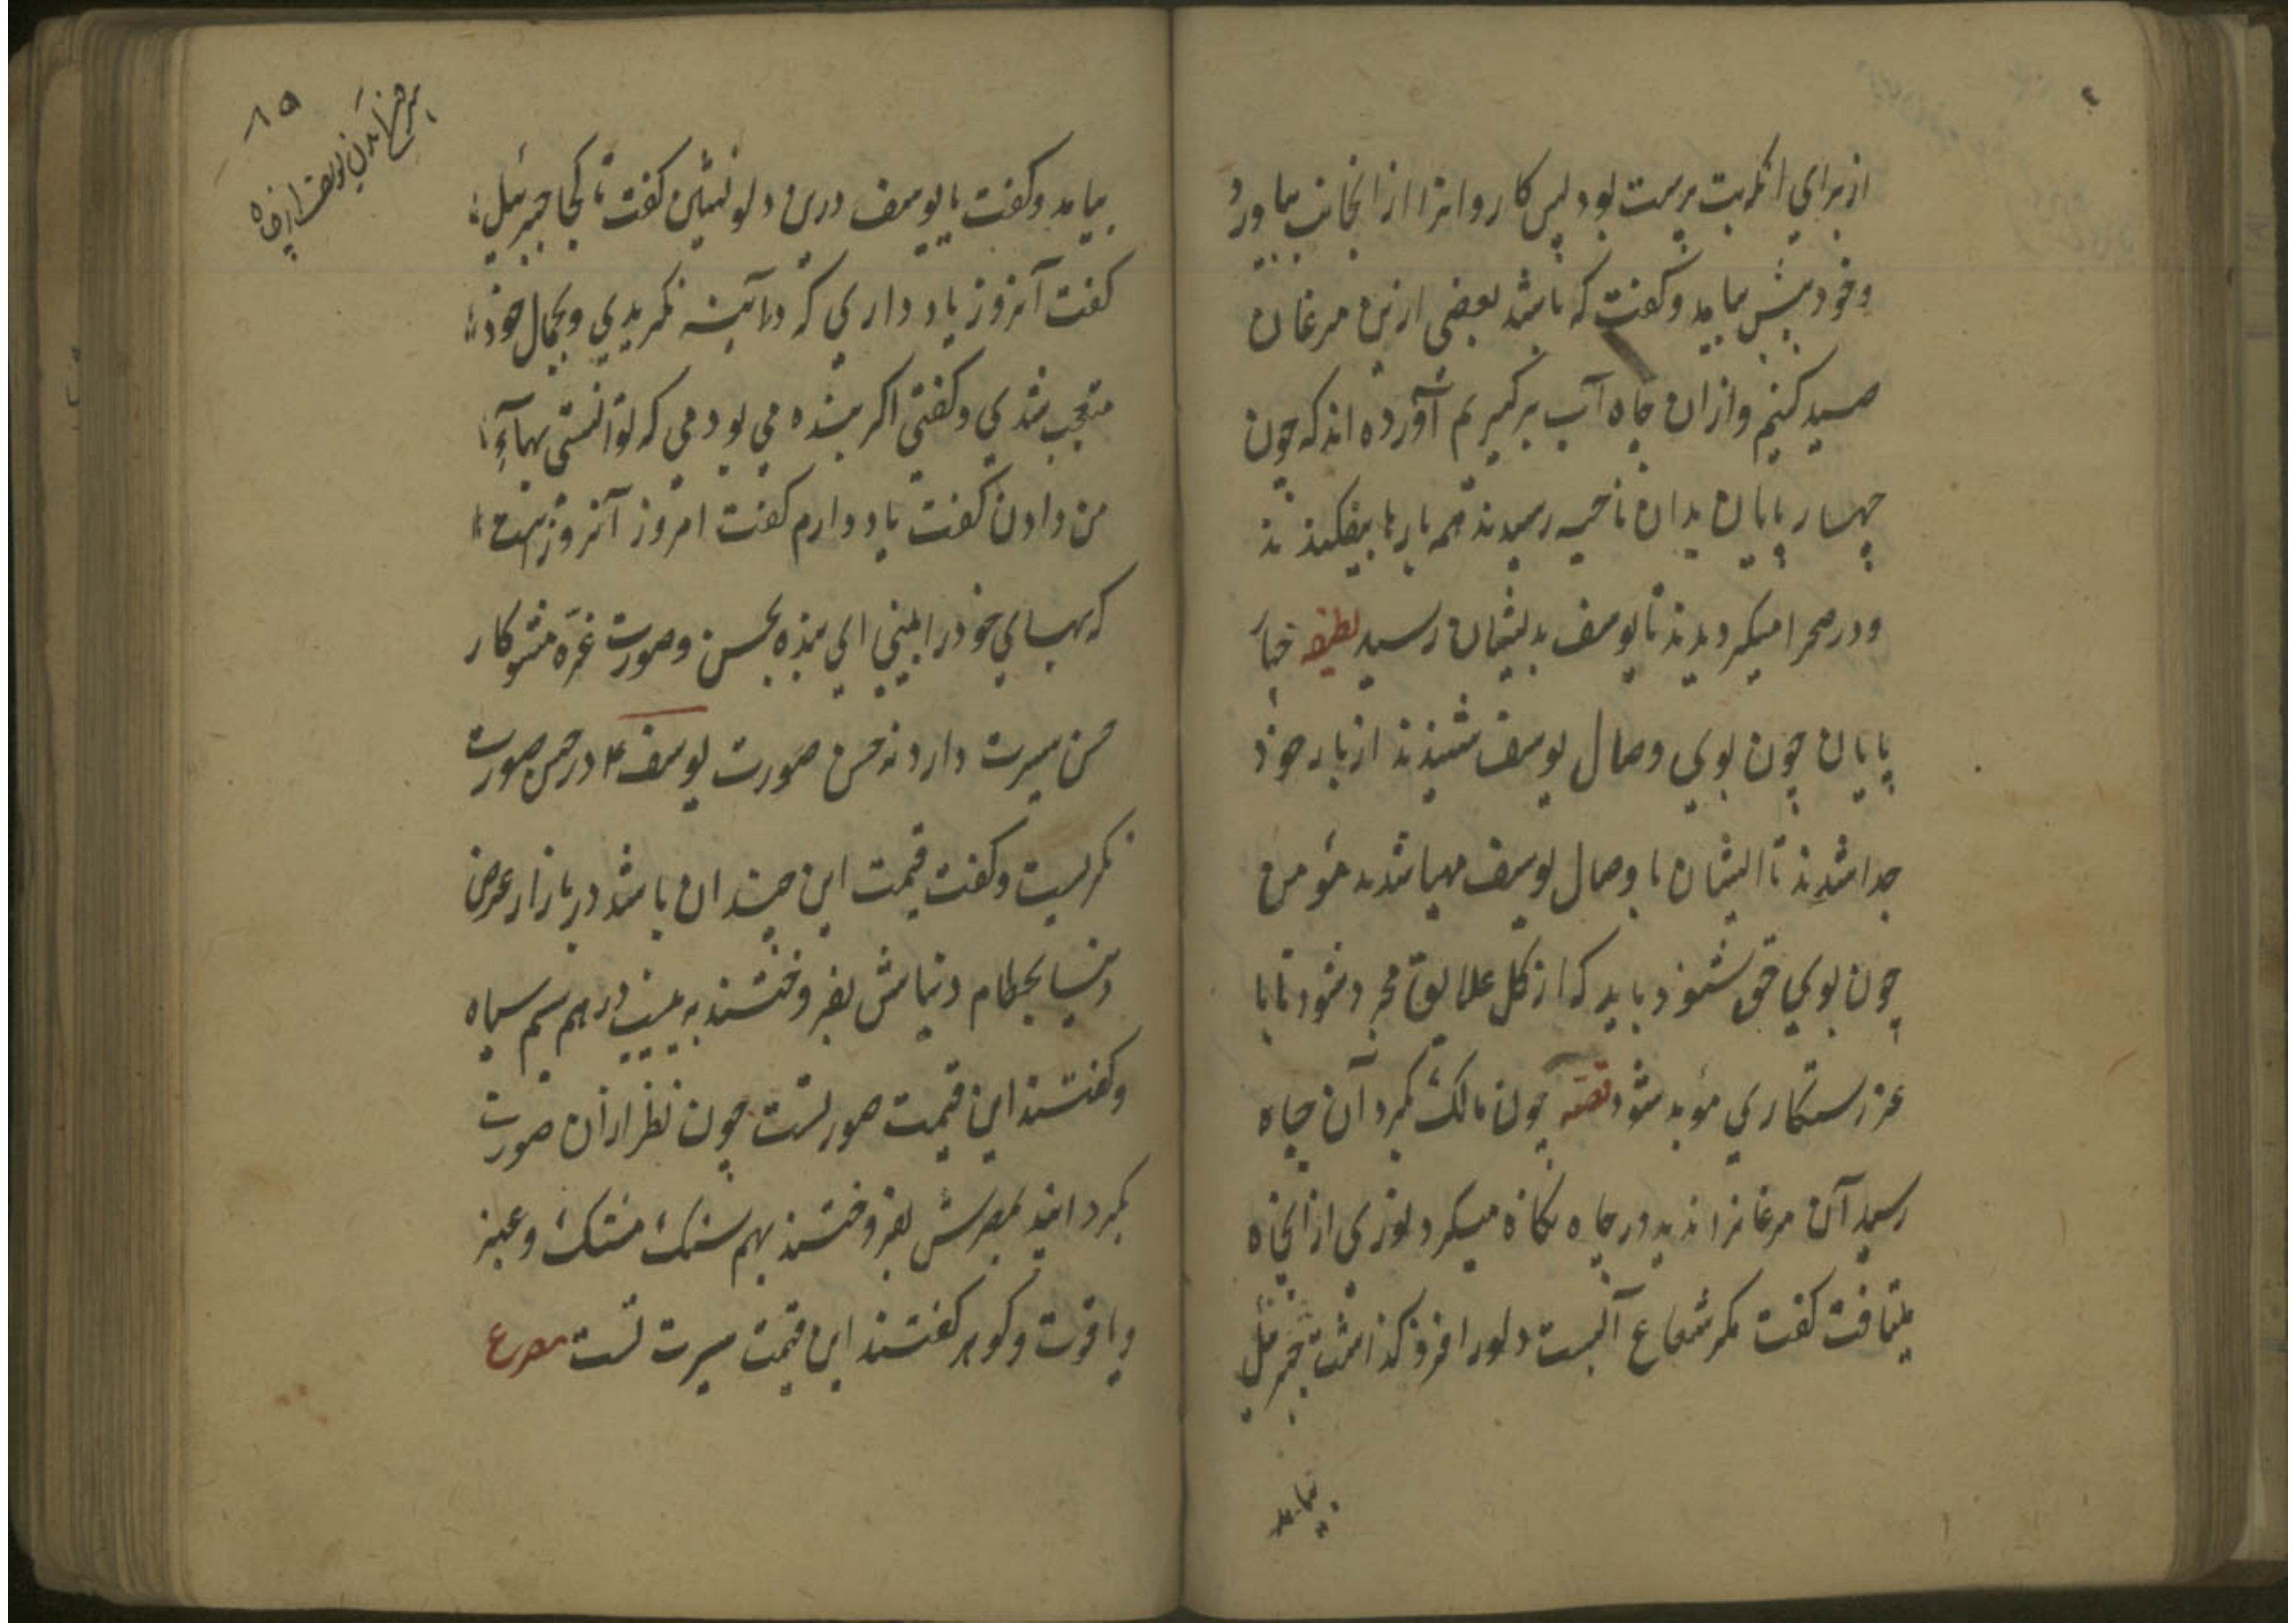 از برای انکه بت پرست بود پس کاروانرا از انجانب بیاورد
و خود پیش بیامد و کفت که باشد بعضی ازین مرغان
صید کنیم و ازان چاه آب برکیریم آورده اند که چون
چهار پایان بدان ناحیه رسیدند همه بارها بیفکندند
و در صحرا میکردیدند تا یوسف بدیشان رسید لطیفه چهار
پایان چون بوی وصال یوسف شنیدند از بار خود
جدا شدند تا ایشان با وصال یوسف مهیا شدند مؤمن
چون بوی حق شنود باید که از کل علایق مجرد شود تا با
عز رستکاری مؤید شود قصه چون مالک بکرد آن چاه
رسید آن مرغانرا ندید در چاه نکاه میکرد نوری از انجاه
میتافت کفت مکر شعاع آبست دلو را فرو کذاشت جبرئیل
بیامد
۸۵
بیرون آمدن یوسف از چاه
بیامد و کفت یا یوسف درین دلو نشین کفت تا کجا جبرئیل
کفت آنروز یاد داری که در آینه نکریدی و بجمال خود
متعجب شدی و کفتی اکر بنده می بودمی که توانستی بهاء
من دادن کفت یاد دارم کفت امروز آنروزست
که بهای خود را ببینی ای بنده بحسن و صورت غره مشو کار
حسن سیرت دارد نه حسن صورت یوسف ع در حسن صورت
نکریست و کفت قیمت این چندان باشد در بازار عرض
دنیا بحطام دنیاش بفروختند به بیست درهم سیم سیاه
و کفتند این قیمت صورتست چون نظر ازان صورت
بکردانید بمصرش بفروختند بهم سنک مشک و عنبر
و یاقوت و کوهر کفتند این قیمت سیرت تست مصرع